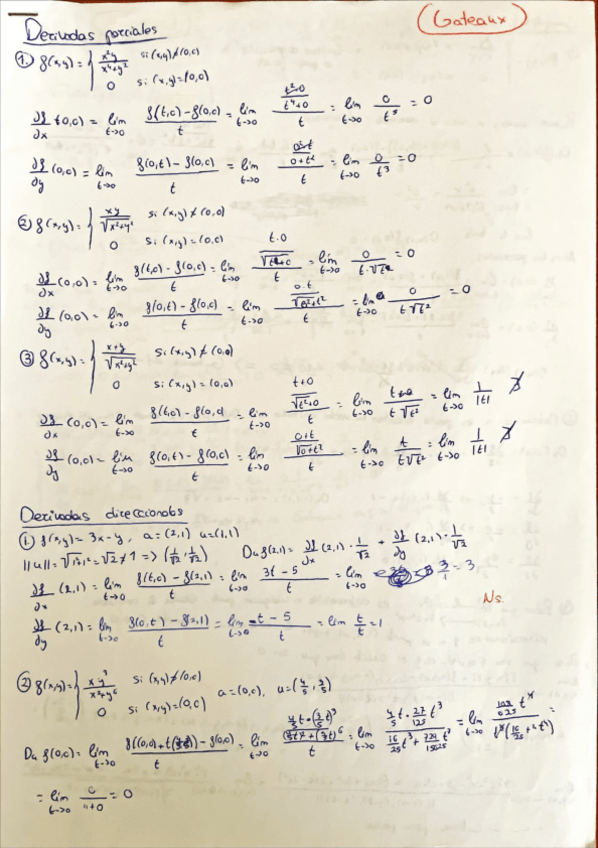 (Gateaux)
Derivadas parciales
① f(x,y) = { x²y / x⁴+y² si (x,y)≠(0,0)
0 si (x,y)=(0,0)
∂f/∂x (0,0) = lim t→0 f(t,0) - f(0,0) / t = lim t→0 (t²·0 / t⁴+0) / t = lim t→0 0/t⁵ = 0
∂f/∂y (0,0) = lim t→0 f(0,t) - f(0,0) / t = lim t→0 (0·t / 0+t²) / t = lim t→0 0/t³ = 0
② f(x,y) = { xy / √x²+y² si (x,y)≠(0,0)
0 si (x,y)=(0,0)
∂f/∂x (0,0) = lim t→0 f(t,0) - f(0,0) / t = lim t→0 (t·0 / √t²+0) / t = lim t→0 0 / t·√t² = 0
∂f/∂y (0,0) = lim t→0 f(0,t) - f(0,0) / t = lim t→0 (0·t / √0²+t²) / t = lim t→0 0 / t√t² = 0
③ f(x,y) = { x+y / √x²+y² si (x,y)≠(0,0)
0 si (x,y)=(0,0)
∂f/∂x (0,0) = lim t→0 f(t,0) - f(0,0) / t = lim t→0 (t+0 / √t²+0) / t = lim t→0 t+0 / t√t² = lim t→0 1/|t| ∄
∂f/∂y (0,0) = lim t→0 f(0,t) - f(0,0) / t = lim t→0 (0+t / √0+t²) / t = lim t→0 t / t√t² = lim t→0 1/|t| ∄
Derivadas direccionales
① f(x,y) = 3x-y, a=(2,1) u=(1,1)
||u|| = √1²+1² = √2 ≠ 1 => (1/√2, 1/√2) Du f(2,1) = ∂f/∂x (2,1) · 1/√2 + ∂f/∂y (2,1) · 1/√2
∂f/∂x (2,1) = lim t→0 f(t,0) - f(2,1) / t = lim t→0 3t - 5 / t = lim t→0 3/1 = 3
Ns.
∂f/∂y (2,1) = lim t→0 f(0,t) - f(2,1) / t = lim t→0 -t - 5 / t = lim t/t = 1
② f(x,y) = { xy³ / x²+y⁶ si (x,y)≠(0,0)
0 si (x,y)=(0,0) a=(0,0), u=(4/5, 3/5)
Du f(0,0) = lim t→0 f((0,0)+t( )) - f(0,0) / t = lim t→0 (4/5 t·(3/5 t)³ / ) / t = lim t→0 4/5 t · 27/125 t³ / = lim t→0 =
= lim t→0 0 / 11+0 = 0